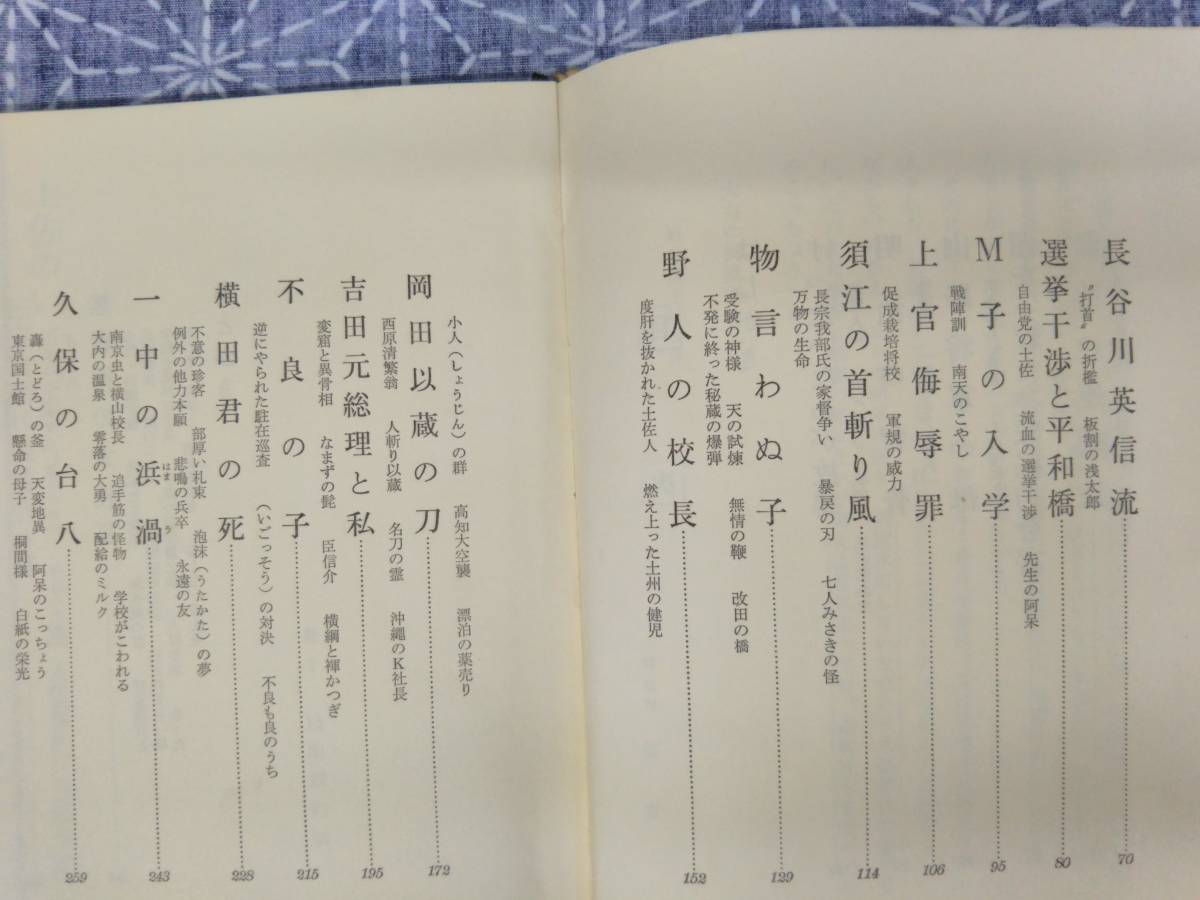 長谷川英信流……70
〝打首〟の折檻　板割の浅太郎
選挙干渉と平和橋……80
自由党の土佐　流血の選挙干渉　先生の阿呆
M子の入学……95
戦陣訓　南天のこやし
上官侮辱罪……106
促成栽培将校　軍規の威力
須江の首斬り風……114
長宗我部氏の家督争い　暴戻の刃　七人みさきの怪
万物の生命
物言わぬ子……129
受験の神様　天の試煉　無情の鞭　改田の橋
不発に終った秘蔵の爆弾
野人の校長……152
度肝を抜かれた土佐人　燃え上った土州の健児
小人（しょうじん）の群　高知大空襲　漂泊の薬売り
岡田以蔵の刀……172
西原清繁翁　人斬り以蔵　名刀の霊　沖縄のK社長
吉田元総理と私……195
変窟と異骨相　なまずの髭　臣信介　横綱と褌かつぎ
不良の子……215
逆にやられた駐在巡査　（いごっそう）の対決　不良も良のうち
横田君の死……228
不意の珍客　部厚い札束　泡沫（うたかた）の夢
例外の他力本願　悲鳴の兵卒　永遠の友
一中の浜渦……243
はま　う
南京虫と横山校長　追手筋の怪物　学校がこわれる
大内の温泉　零落の大勇　配給のミルク
久保の台八……259
轟（とどろ）の釜　天変地異　阿呆のこっちょう
東京国士館　懸命の母子　桐間様　白紙の栄光